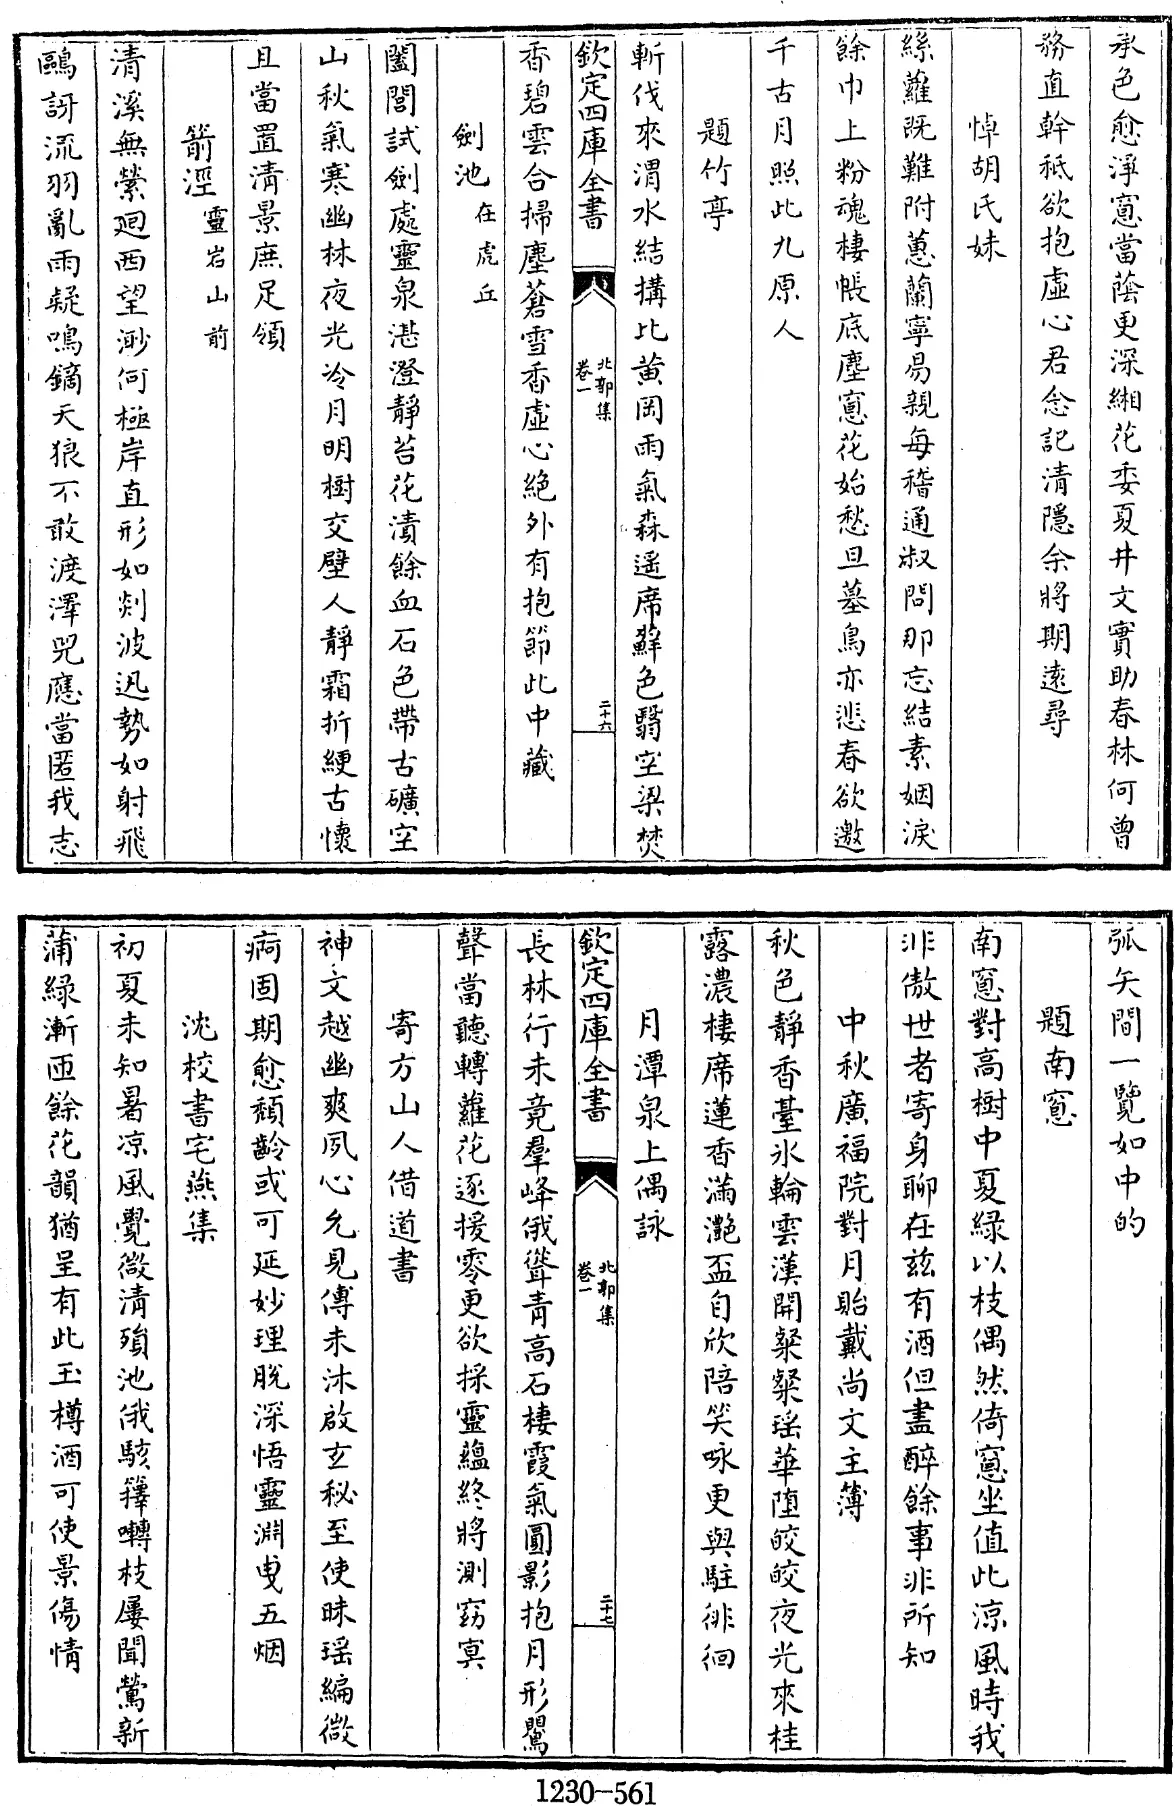 承色愈淨窻當蔭更深緗花委夏井文實助春林何曾
務直幹秖欲抱虚心君念記清隱余將期遠尋
悼胡氏妹
絲蘿既難附蕙蘭寧易親每稽通叔問那忘結素姻淚
餘巾上粉魂棲帳底塵窻花始愁旦墓鳥亦悲春欲邀
千古月照此九原人
題竹亭
斬伐來渭水結搆比黄岡雨氣森遥席蘚色翳空梁焚
欽定四庫全書
北郭集
卷一
二十六
香碧雲合掃塵蒼雪香虚心絶外有抱節此中藏
劍池在虎丘
闔閭試劍處靈泉湛澄靜苔花漬餘血石色帶古礦空
山秋氣寒幽林夜光冷月明樹交壁人靜霜折綆古懷
且當置清景庶足領
箭涇靈岩山前
清溪無縈廻西望渺何極岸直形如剡波迅勢如射飛
鷗訝流羽亂雨疑鳴鏑天狼不敢渡澤兕應當匿我志
弧矢間一覽如中的
題南窻
南窻對高樹中夏緑以枝偶然倚窻坐值此涼風時我
非傲世者寄身聊在兹有酒但盡醉餘事非所知
中秋廣福院對月貽戴尚文主薄
秋色靜香臺氷輪雲漢開粲粲瑶華墮皎皎夜光來桂
露濃棲席蓮香滿灔盃自欣陪笑咏更與駐徘徊
月潭泉上偶詠
欽定四庫全書
北郭集
卷一
二十七
長林行未竟羣峰俄聳青高石棲霞氣圓影抱月形鸎
聲當聽轉蘿花逐援零更欲採靈蘊終將測窈冥
寄方山人借道書
神文越幽爽夙心允見傅未沐啟玄秘至使昧瑶編微
痾固期愈頽齡或可延妙理脱深悟靈淵曵五烟
沈校書宅燕集
初夏未知暑凉風覺微清殞池俄駭籜囀枝屢聞鶯新
蒲緑漸匝餘花韻猶呈有此玉樽酒可使景傷情
1230-561